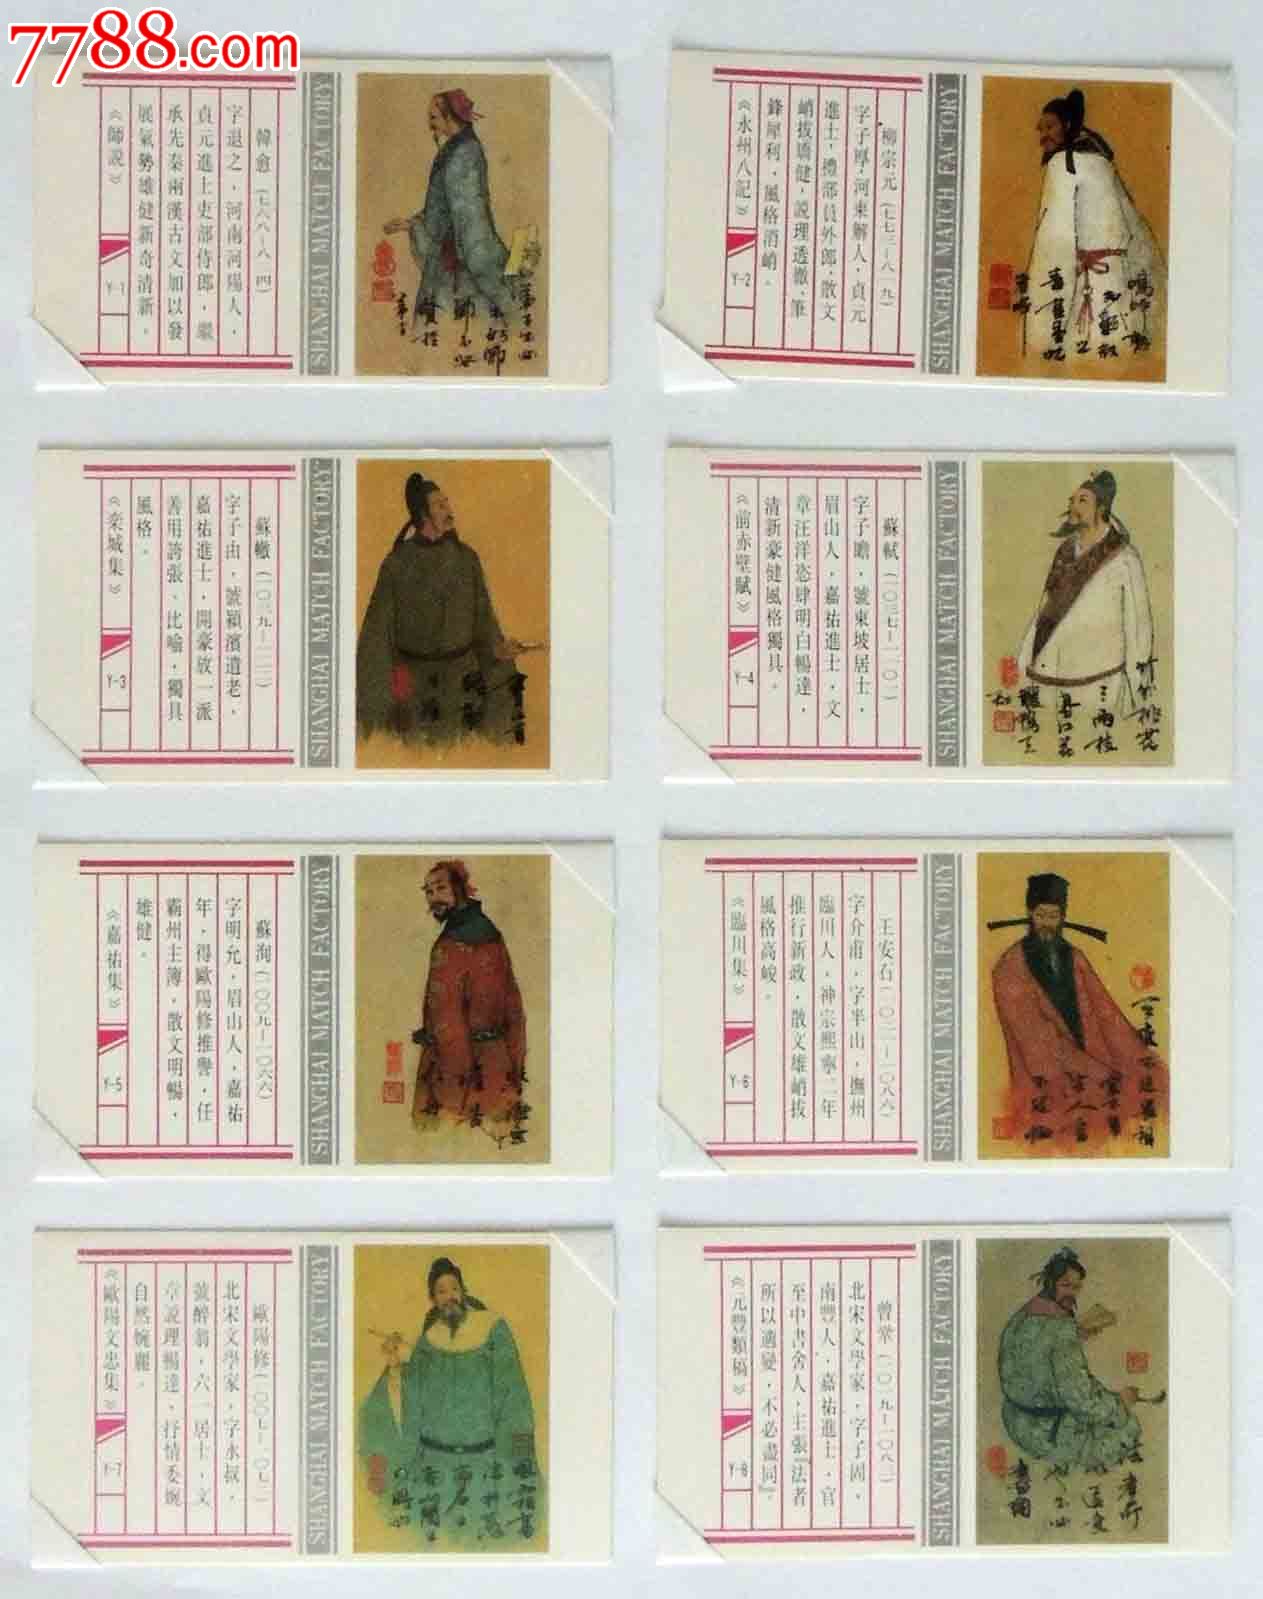 7788.com
韓愈(七六八–八二四)
字退之,河南河陽人,
貞元進士吏部侍郎,繼
承先秦兩漢古文加以發
展氣勢雄健新奇清新。
《師説》
Y-1
SHANGHAI MATCH FACTORY
柳宗元(七七三–八一九)
字子厚,河東解人,貞元
進士,禮部員外郎,散文
峭拔矯健,説理透徹,筆
鋒犀利,風格消峭。
《永州八記》
Y-2
SHANGHAI MATCH FACTORY
蘇轍(一〇三九–一一一二)
字子由,號潁濱遺老,
嘉祐進士,開豪放一派
善用誇張、比喻,獨具
風格。
《栾城集》
Y-3
SHANGHAI MATCH FACTORY
蘇軾(一〇三七–一一〇一)
字子瞻,號東坡居士,
眉山人,嘉祐進士,文
章汪洋恣肆明白暢達,
清新豪健風格獨具。
《前赤壁賦》
Y-4
SHANGHAI MATCH FACTORY
蘇洵(一〇〇九–一〇六六)
字明允,眉山人,嘉祐
年,得歐陽修推譽,任
霸州主簿,散文明暢,
雄健。
《嘉祐集》
Y-5
SHANGHAI MATCH FACTORY
王安石(一〇二一–一〇八六)
字介甫,字半山,撫州
臨川人,神宗熙寧二年
推行新政,散文雄峭拔
風格高峻。
《臨川集》
Y-6
SHANGHAI MATCH FACTORY
歐陽修(一〇〇七–一〇七二)
北宋文學家,字永叔,
號醉翁,六一居士,文
章説理暢達,抒情委婉
自然婉麗。
《歐陽文忠集》
Y-7
SHANGHAI MATCH FACTORY
曾鞏(一〇一九–一〇八三)
北宋文學家,字子固,
南豐人,嘉祐進士,官
至中書舍人,主張『法者
所以適變,不必盡同』。
《元豐類稿》
Y-8
SHANGHAI MATCH FACTORY